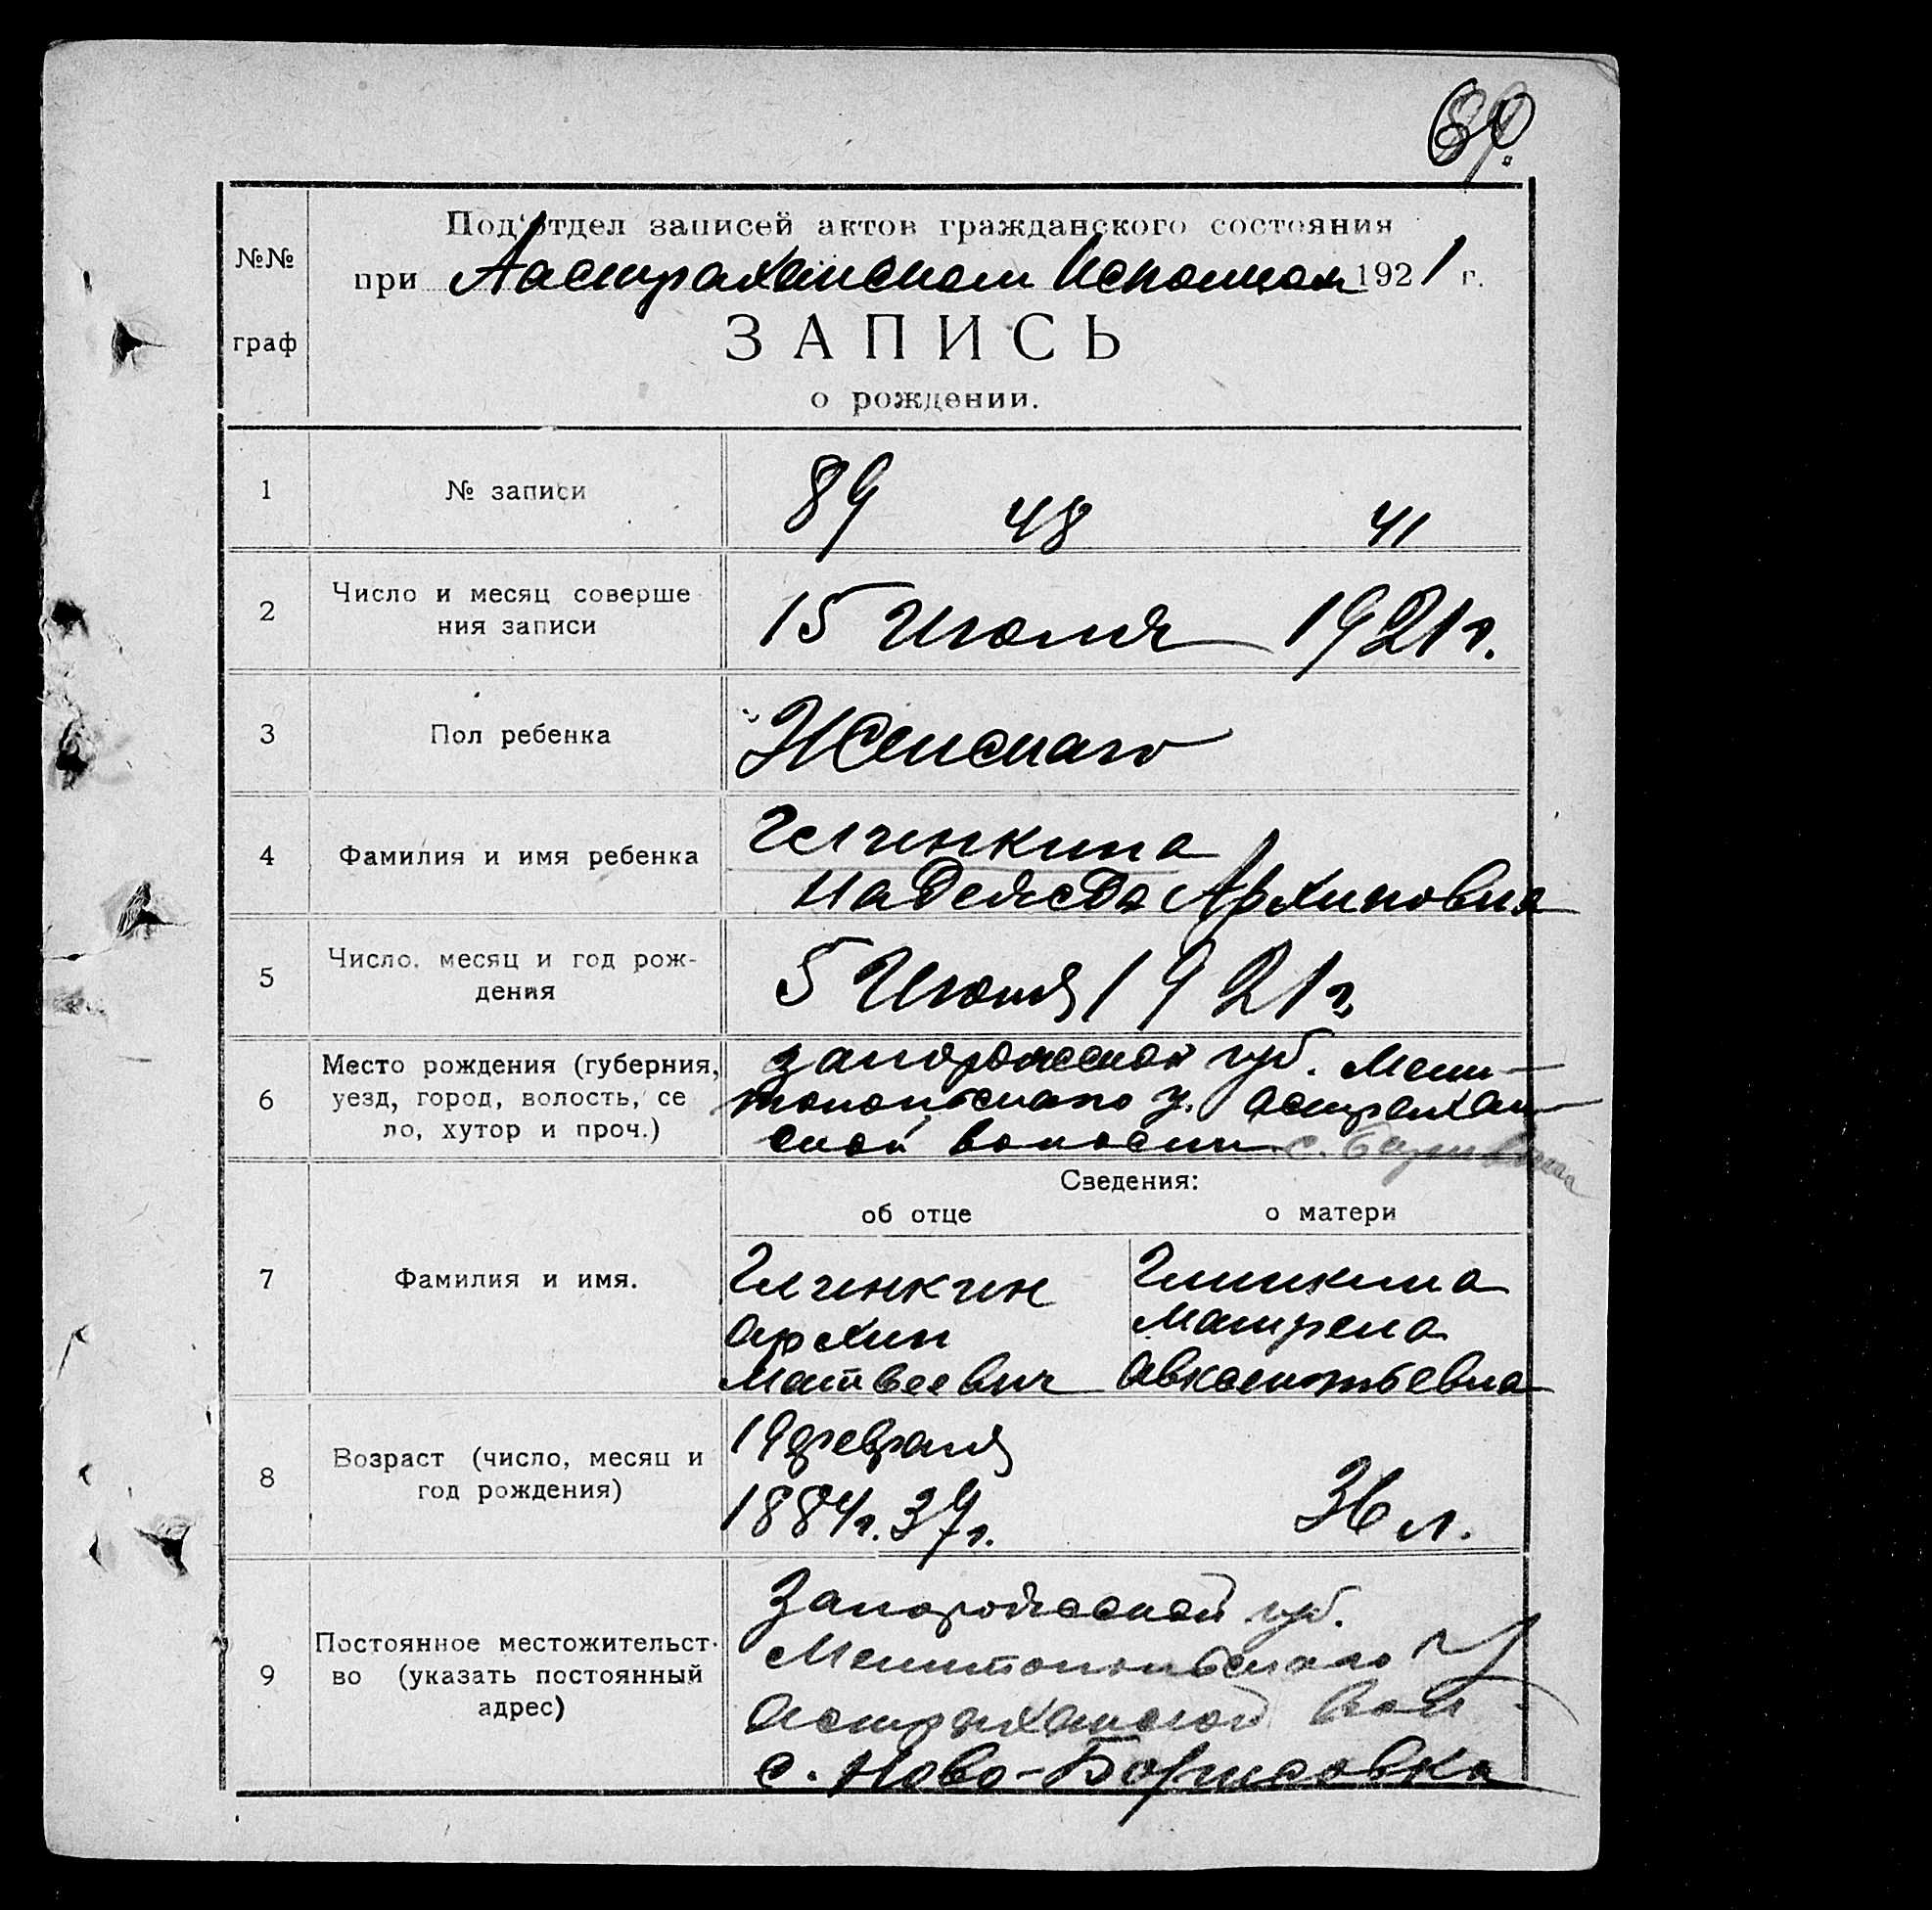 Под'отдел записей актов гражданского состояния
№№
при Аастраханском Исполком 1921 г.
граф
ЗАПИСЬ
о рождении.
1 № записи 89 48 41
2 Число и месяц соверше
ния записи 15 Июля 1921 г.
3 Пол ребенка Женскаго
4 Фамилия и имя ребенка Глинкина
Надежда Архиповна
5 Число, месяц и год рож-
дения 5 Июля 1921 г.
6 Место рождения (губерния, Запорожской губ. Мели-
уезд, город, волость, се топольскаго у. Астрахан-
ло, хутор и проч.) ской волости с.
Сведения:
об отце о матери
7 Фамилия и имя. Глинкин Глинкина
Архип Матрена
Матвеевич Авксентьевна
8 Возраст (число, месяц и 19 февраля
год рождения) 1884 г. 37 г. 36 л.
Запорожской губ.
9 Постоянное местожительст- Мелитопольскаго у
во (указать постоянный Астраханской вол
адрес) с. Ново-Борисовка